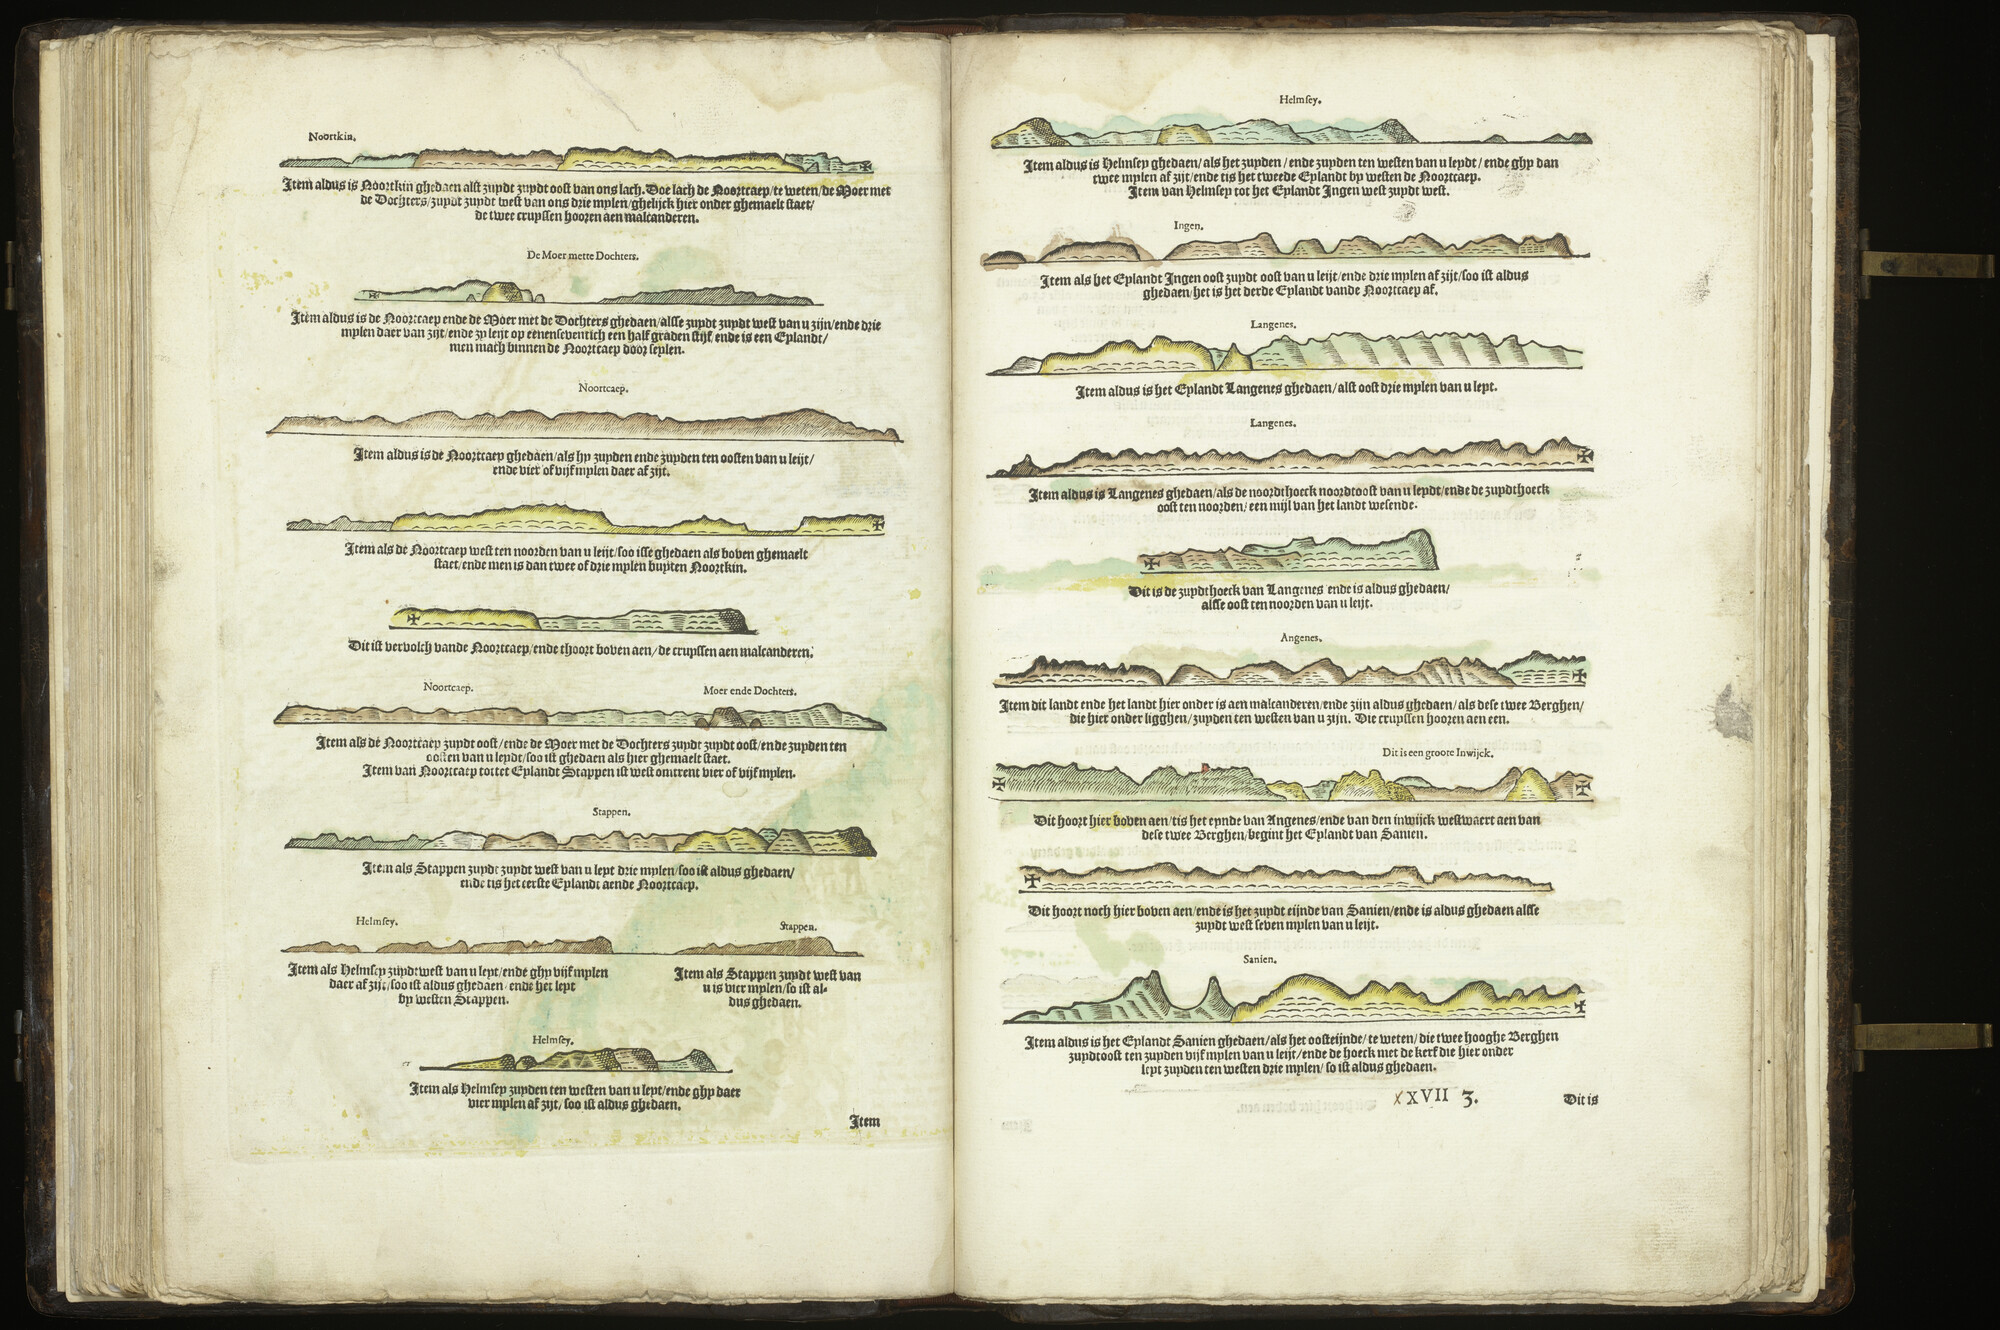 Noortkin.
Item aldus is Noortkin ghedaen alst zuydt zuydt oost van ons lach. Doe lach de Noortcaep/te weten/de Moer met
de Dochters/zuydt zuydt west van ons drie mylen/ghelijck hier onder ghemaelt staet/
de twee cruyssen hooren aen malcanderen.
De Moer mette Dochters.
Item aldus is de Noortcaep ende de Moer met de Dochters ghedaen/alsse zuydt zuydt west van u zijn/ende drie
mylen daer van zijt/ende zy leyt op eenenseventich een half graden stijf/ende is een Eylandt/
men mach binnen de Noortcaep door seylen.
Noortcaep.
Item aldus is de Noortcaep ghedaen/als hy zuyden ende zuyden ten oosten van u leijt/
ende vier of vijf mylen daer af zijt.
Item als de Noortcaep west ten noorden van u leijt/soo isse ghedaen als boven ghemaelt
staet/ende men is dan twee of drie mylen buyten Noortkin.
Dit ist vervolch vande Noortcaep/ende thoort boven aen/de cruyssen aen malcanderen.
Noortcaep.
Moer ende Dochters.
Item als de Noortcaep zuydt oost/ende de Moer met de Dochters zuydt zuydt oost/ende zuyden ten
oosten van u leydt/soo ist ghedaen als hier ghemaelt staet.
Item van Noortcaep tot tet Eylandt Stappen ist west omtrent vier of vijf mylen.
Stappen.
Item als Stappen zuydt zuydt west van u leyt drie mylen/soo ist aldus ghedaen/
ende tis het eerste Eylandt aende Noortcaep.
Helmsey.
Stappen.
Item als Helmsey zuydtwest van u leyt/ende ghy vijf mylen
daer af zijt/soo ist aldus ghedaen/ende het leyt
by westen Stappen.
Item als Stappen zuydt west van
u is vier mylen/so ist al-
dus ghedaen.
Helmsey.
Item als Helmsey zuyden ten westen van u leyt/ende ghy daer
vier mylen af zijt/soo ist aldus ghedaen.
Item
Helmsey.
Item aldus is Helmsey ghedaen/als het zuyden/ende zuyden ten westen van u leydt/ende ghy dan
twee mylen af zijt/ende tis het tweede Eylandt by westen de Noortcaep.
Item van Helmsey tot het Eylandt Ingen west zuydt west.
Ingen.
Item als het Eylandt Ingen oost zuydt oost van u leijt/ende drie mylen af zijt/soo ist aldus
ghedaen/het is het derde Eylandt vande Noortcaep af.
Langenes.
Item aldus is het Eylandt Langenes ghedaen/alst oost drie mylen van u leyt.
Langenes.
Item aldus is Langenes ghedaen/als de noordthoeck noordtoost van u leydt/ende de zuydthoeck
oost ten noorden/een mijl van het landt wesende.
Dit is de zuydthoeck van Langenes ende is aldus ghedaen/
alsse oost ten noorden van u leijt.
Angenes.
Item dit landt ende het landt hier onder is aen malcanderen/ende zijn aldus ghedaen/als dese twee Berghen/
die hier onder ligghen/zuyden ten westen van u zijn. Die cruyssen hooren aen een.
Dit is een groote Inwijck.
Dit hoort hier boven aen/tis het eynde van Angenes/ende van den inwijck westwaert aen van
dese twee Berghen/begint het Eylandt van Sanien.
Dit hoort noch hier boven aen/ende is het zuydt eijnde van Sanien/ende is aldus ghedaen alsse
zuydt west seven mylen van u leijt.
Sanien.
Item aldus is het Eylandt Sanien ghedaen/als het oosteijnde/te weten/die twee hooghe Berghen
zuydtoost ten zuyden vijf mylen van u leijt/ende de hoeck met de kerf die hier onder
leyt zuyden ten westen drie mylen/so ist aldus ghedaen.
XXVII 3.
Dit is